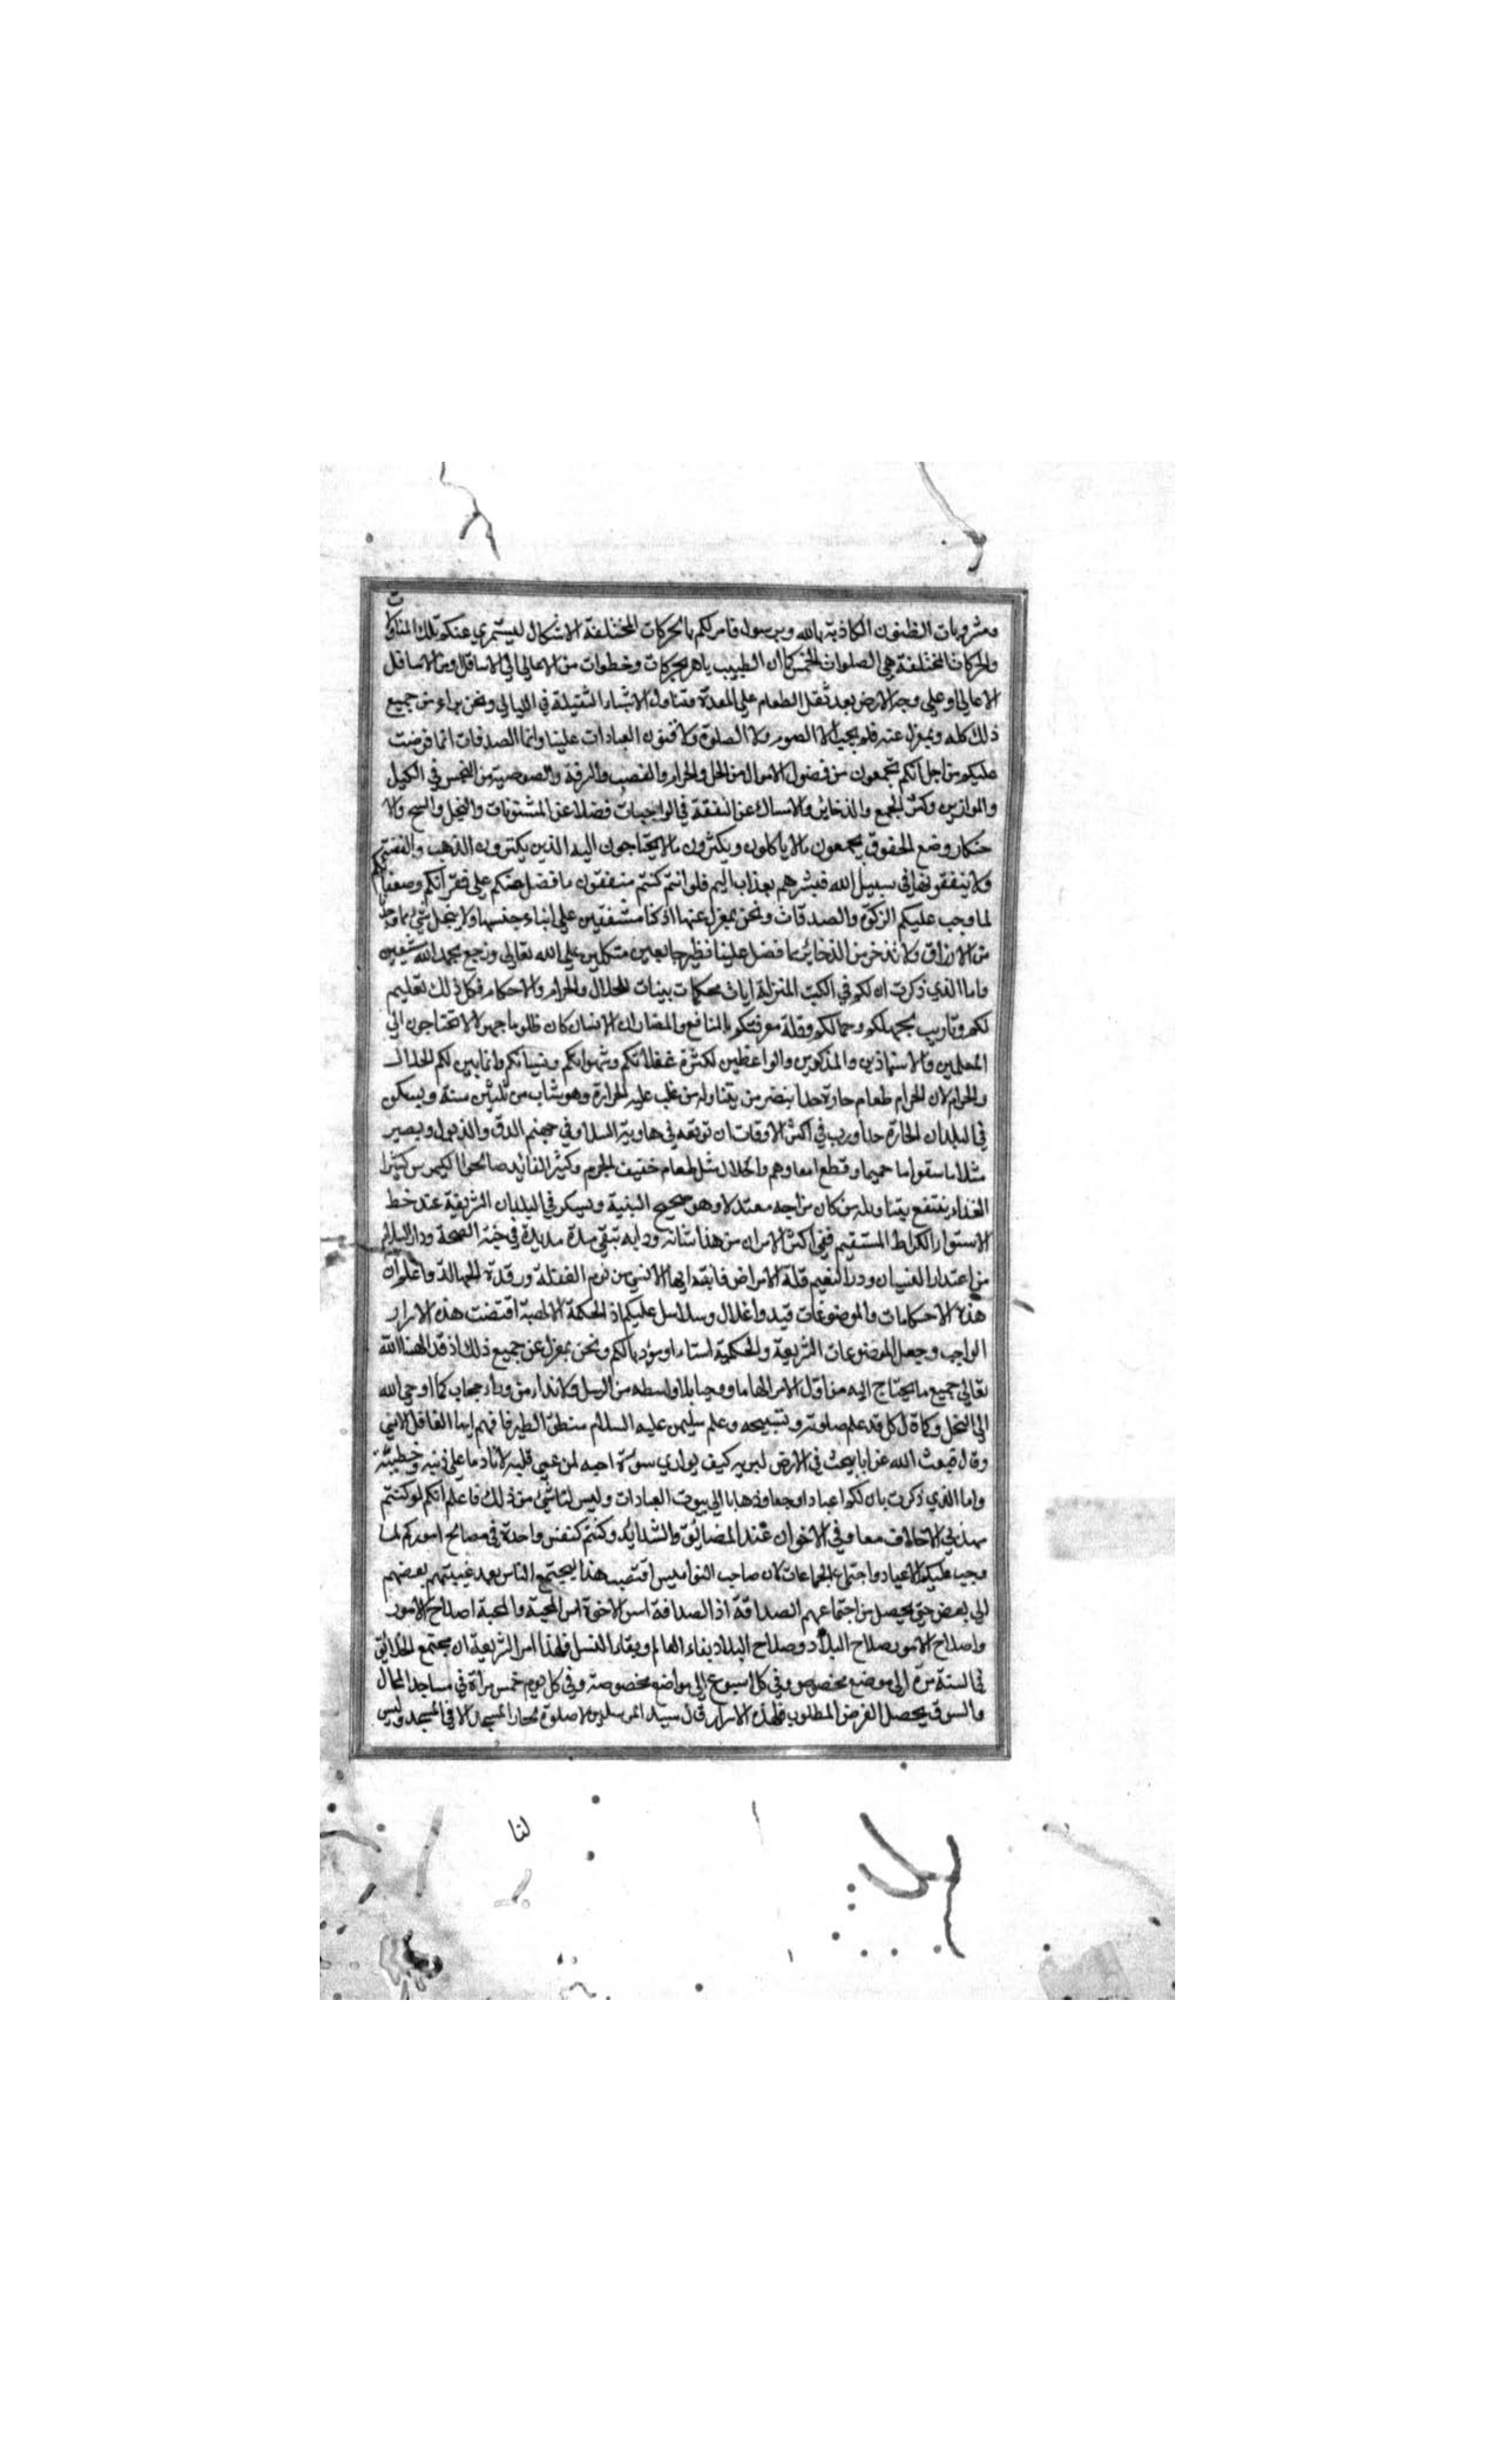 ومشروبات الظنون الكاذبة بالله وبرسول فامركم بالحركات المختلفة الاشكال ليستمري عنكم تلك المتناولات
والحركات المختلفة هي الصلوات الخمس كما ان الطبيب يامر بحركات وخطوات من الاعالي الي الاسافل ومن الاسافل
الاعالي وعلي وجه الارض بعد ثقل الطعام علي المعدة وتناول الاشياء الثقيلة في الليالي ونحن براء من جميع
ذلك كله وبمعزل عنه فلم يجب الا الصوم ولا الصلوة ولا فنون العبادات علينا وانما الصدقات انما فرضت
عليكم من اجل انكم تجمعون من فضول الاموال من الحل والحرام والغصب والسرقة واللصوصية من البخس في الكيل
والموازين وكثرة الجمع والذخاير والامساك عن النفقة في الواجبات فضلا عن المسنونات والبخل والشح والا
حتكار ومنع الحقوق يجمعون ما لا ياكلون ويكثرون ما لا يحتاجون اليه الذين يكنزون الذهب والفضة
ولا ينفقونها في سبيل الله فبشرهم بعذاب اليم فلو انتم كنتم منفقون ما فضل عنكم علي فقرائكم وضعفائكم
لما وجب عليكم الزكوة والصدقات ونحن بمعزل عنها اذ كنا مشفقين علي ابناء جنسها ولا يبخل بشيء مما
من الارزاق ولا ندخر من الذخاير مما فضل علينا فنطير جايعين متكلين علي الله تعالي ونرجع بحمد الله شبعين
واما الذي ذكرت ان لكم في الكتب المنزلة ايات محكمات بينات للحلال والحرام والاحكام فكل ذلك تعليم
لكم وتاديب بجهلكم وقلة معرفتكم بالمنافع والمضار ان الانسان كان ظلوما جهولا تحتاجون الي
المعلمين والاستاذين والمذكرين والواعظين لكثرة غفلاتكم وشهواتكم ونسيانكم وانما بين لكم الحلال
والحرام لان الحرام طعام حارة جدا ينضر من يتناوله من غلب عليه الحرارة وهو شاب من ثلثين سنة ويسكن
في البلدان الحارة جدا ورب في اكثر الاوقات ان توقعه في هاوية السل وفي جهنم الدق والذبول ويصير
مثلا ما سقوا ماء حميما وقطع امعاوهم والحلال مثل طعام خفيف الجرم وكثير الفائدة صالح الكيموس كثير
الغذاء ينتفع بتناوله من كان مزاجه معتدلا وهو صحيح البنية ويسكن في البلدان الشريفة عند خط
الاستواء كالصراط المستقيم ففي اكثر الامر ان من هذا شانه ودابه تبقي مدة مديدة في جنة الصحة ودار السلام
من اعتدار الغنيان ودر النعيم قلة الامراض فانتبه ايها الانسي من نوم الغفلة ورقدة الجهالة واعلم ان
هذه الاحكامات والموضوعات قيد واغلال وسلاسل عليكم اذ الحكمة الالهية اقتضت هذه الاسرار
الواجب وجعل الموضوعات الشريعة والحكمية استاذا ومؤدبا لكم ونحن بمعزل عن جميع ذلك اذ قد الهمنا الله
تعالي جميع ما يحتاج اليه من اول الامر الهاما ووحيا بلا واسطه من الرسل ولا نداء من وراء حجاب كما اوحي الله
الي النحل وكما قال كل قد علم صلوته وتسبيحه وعلم سليمن عليه السلام منطق الطير فافهم ايها الغافل الانسي
وقال فبعث الله غرابا يبحث في الارض ليريه كيف يواري سوءة اخيه لمن عمي قلبه لا نادما علي ذنبه وخطيئته
واما الذي ذكرت بان لكم اعيادا وجمعا وذهابا الي بيوت العبادات وليس لنا شئ من ذلك فاعلم انكم لو كنتم
مهذبي الاخلاق معاوني الاخوان عند المضائق والشدائد وكنتم كنفس واحدة في مصالح اموركم لما
وجب عليكم الاعياد واجتماع الجماعات لان صاحب النواميس اقتضي هذا ليجتمع الناس بعد غيبتهم بعضهم
الي بعض حتي يحصل من اجتماعهم الصداقة اذ الصداقة اس الاخوة اس المحبة والمحبة اصلاح الامور
واصلاح الامور بصلاح البلاد وصلاح البلاد بقاء العالم وبقاء النسل فلهذا امر الشريعة ان يجتمع الخلائق
في السنة مرة الي موضع مخصوص وفي كل اسبوع الي مواضع مخصوصة وفي كل يوم خمس مراة في مساجد المحال
والسوق يحصل الغرض المطلوب فلهذه الاسرار قال سيد المرسلين لا صلوة لجار المسجد الا في المسجد وليس
لنا